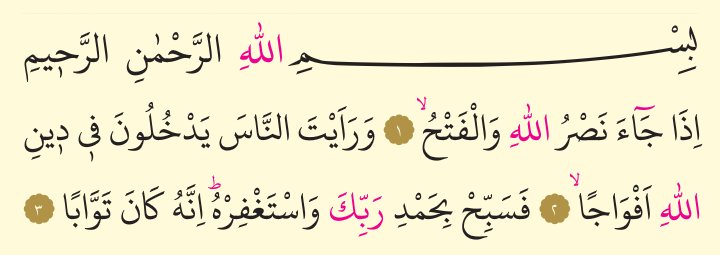 بِسْمِ اللّٰهِ الرَّحْمٰنِ الرَّح۪يمِ
اِذَا جَٓاءَ نَصْرُ اللّٰهِ وَالْفَتْحُۙ ﴿١﴾ وَرَاَيْتَ النَّاسَ يَدْخُلُونَ ف۪ي د۪ينِ
اللّٰهِ اَفْوَاجًاۙ ﴿٢﴾ فَسَبِّحْ بِحَمْدِ رَبِّكَ وَاسْتَغْفِرْهُۜ اِنَّهُ كَانَ تَوَّابًا ﴿٣﴾